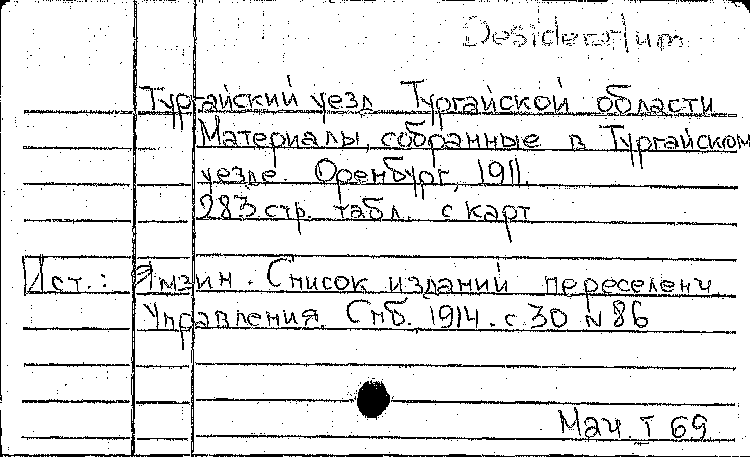 Desideratum
Тургайский уезд Тургайской области
Материалы, собранные в Тургайском
уезде. Оренбург, 1911.
983 стр. табл. с карт
Ист.: Ямзин. Список изданий переселенч
Управления. Спб. 1914. с. 30 N 86
Мач. I 69